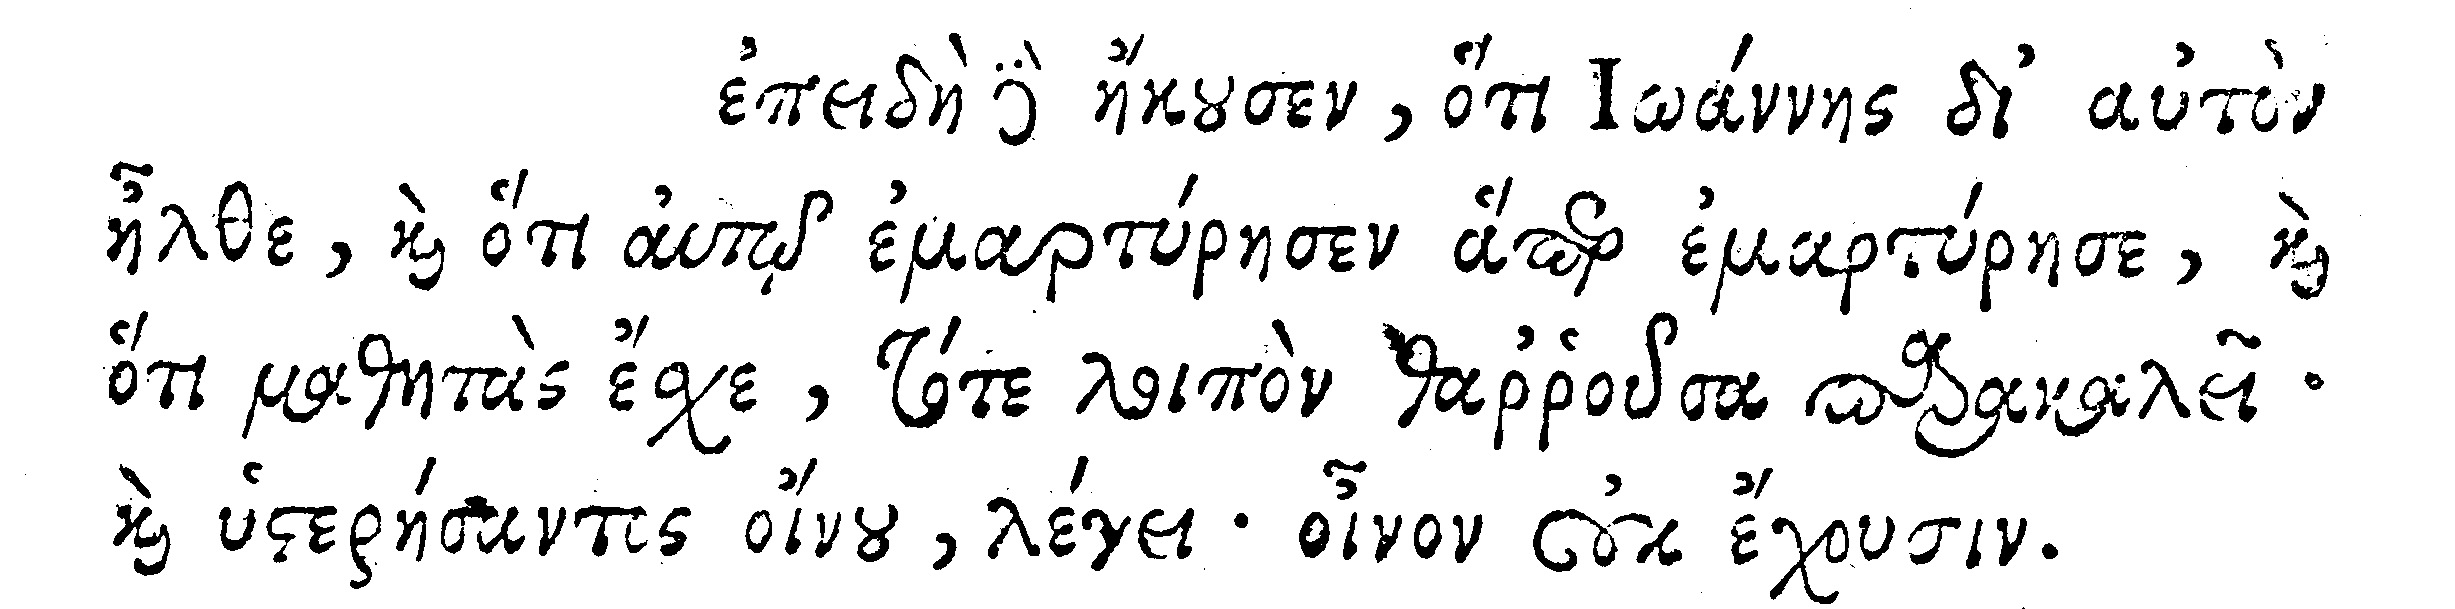 ἐπειδὴ δὲ ἤκουσεν, ὅτι Ἰωάννης δι’ αὐτὸν
ἦλθε, καὶ ὅτι αὐτῷ ἐμαρτύρησεν ἅπερ ἐμαρτύρησε, καὶ
ὅτι μαθητὰς ἔσχε, τότε λοιπὸν θαῤῥοῦσα παρακαλεῖ·
καὶ ὑστερήσαντος οἴνου, λέγει· οἶνον οὐκ ἔχουσιν.